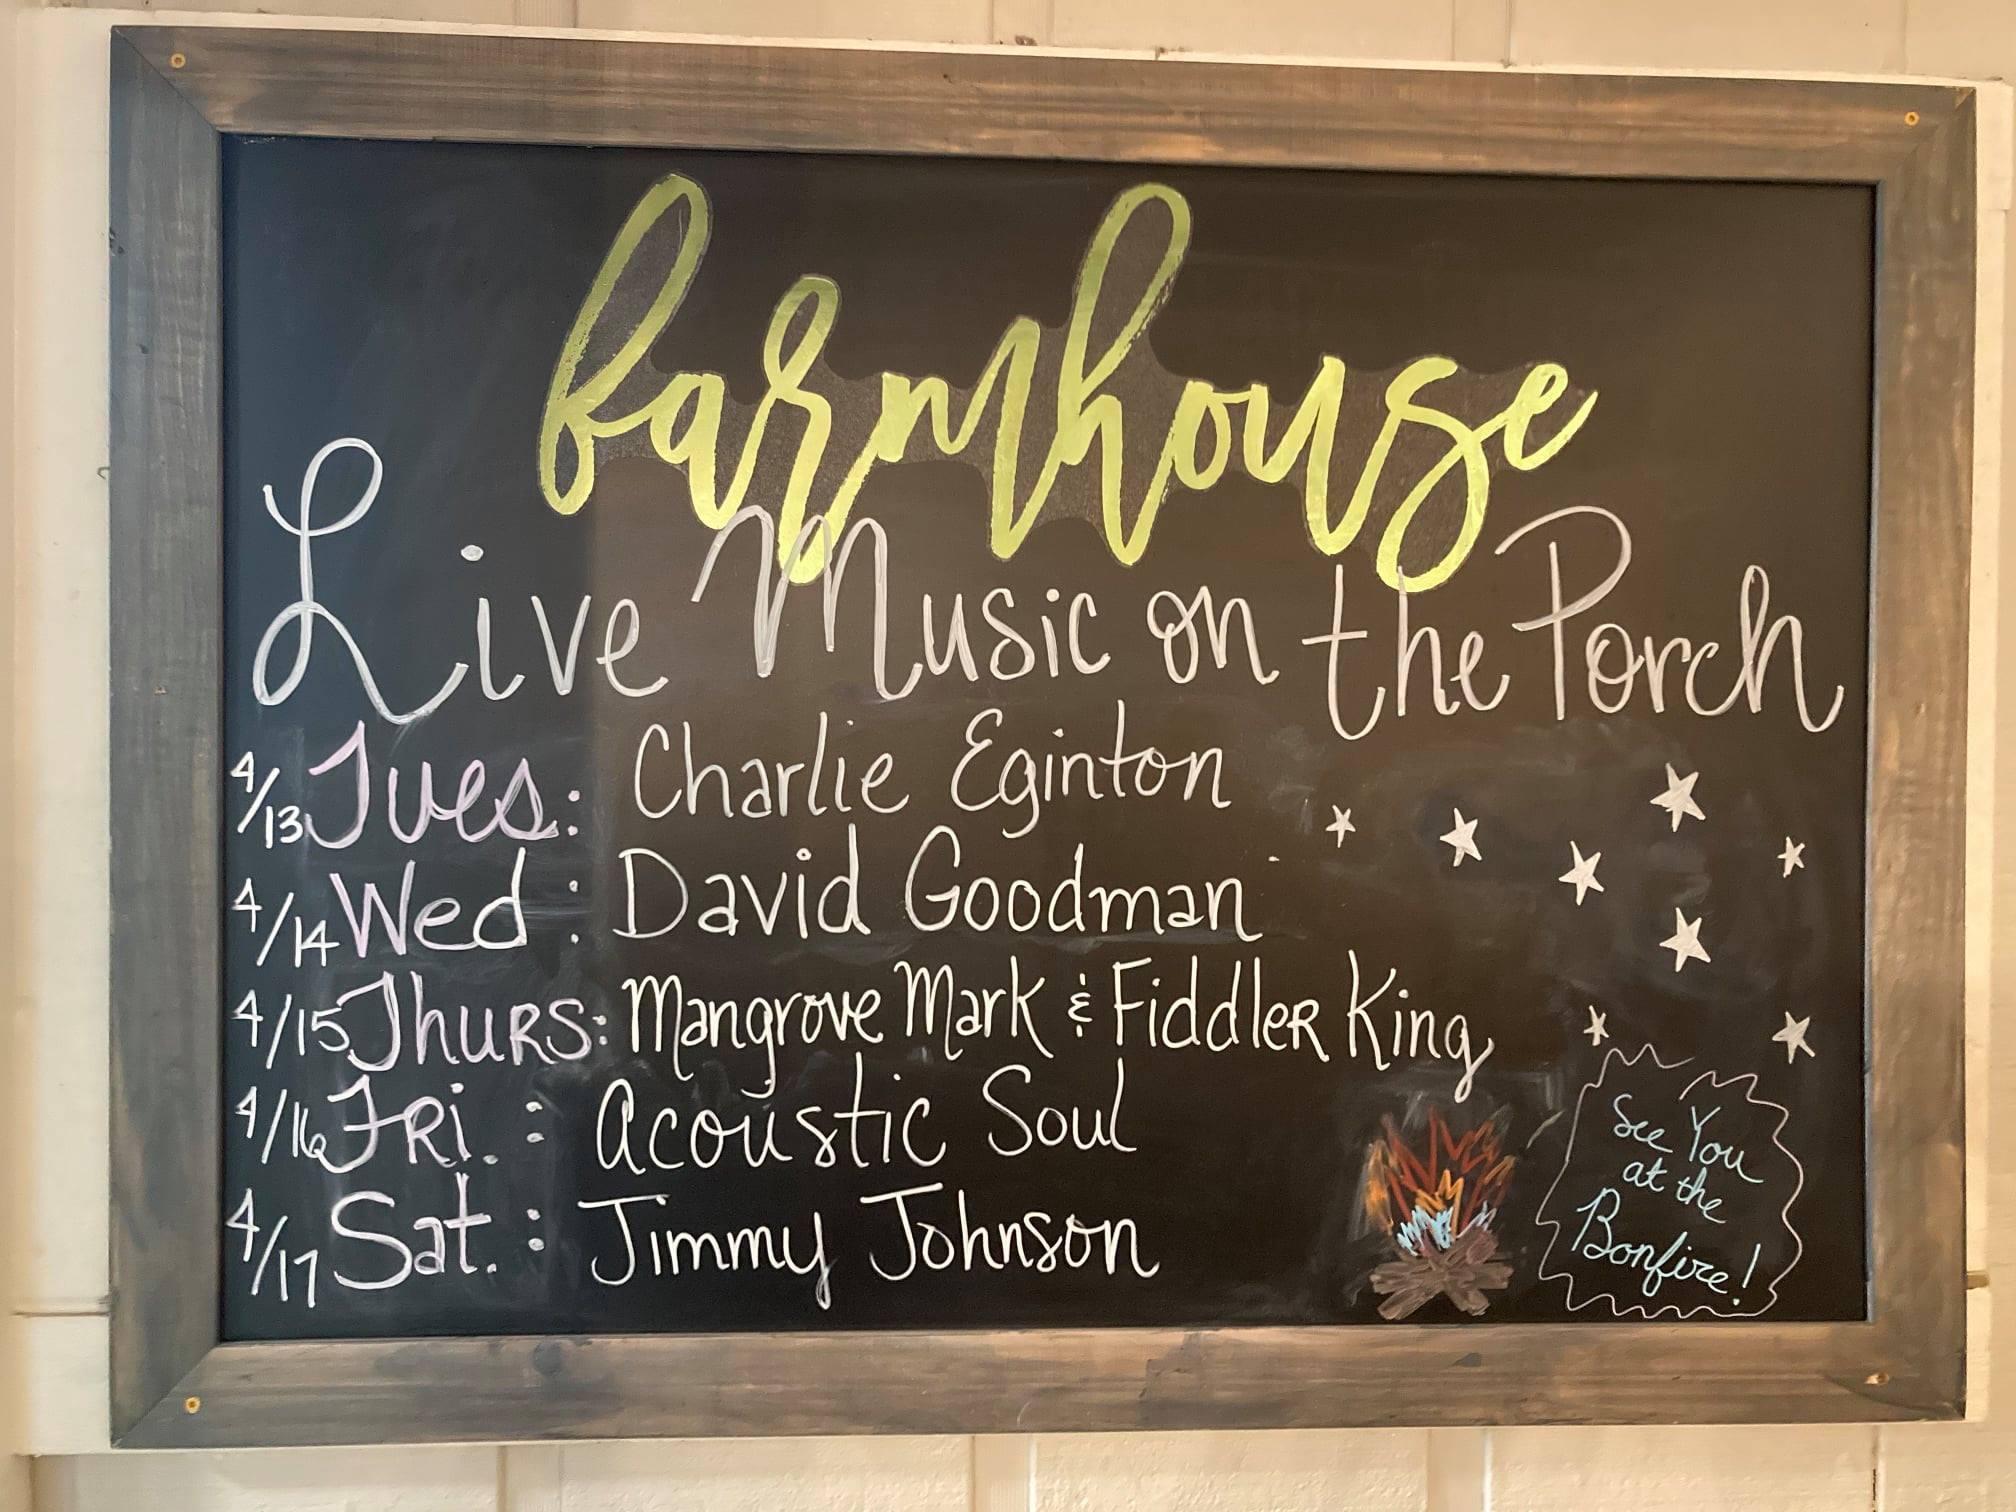 farmhouse
Live Music on the Porch
4/13 Tues: Charlie Eginton
4/14 Wed: David Goodman
4/15 Thurs: Mangrove Mark & Fiddler King
4/16 Fri.: Acoustic Soul
4/17 Sat.: Jimmy Johnson
See You
at the
Bonfire!